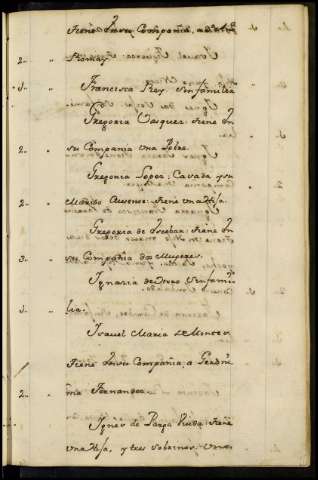 tiene en su Compañia, a
2.. " Romay
1.. " Francisca Rey, sin familia
Gregoria Vasquez: tiene en
2.. " su Compañia una Pobre
Gregoria Lopez: Casada y su
2.. " Marido Ausente: tiene una Hija
Gregoria de Esteban: tiene en
3.. " su Compañia dos Mugeres
Ignasia de Otero, sin fami
1.. " lia.
Isauel Maria de
tiene en su Compañia, a Geroni
2.. " ma Fernandez
Ignes de Parga Viuda: tiene
una Hija, y tres sobrinos, uno